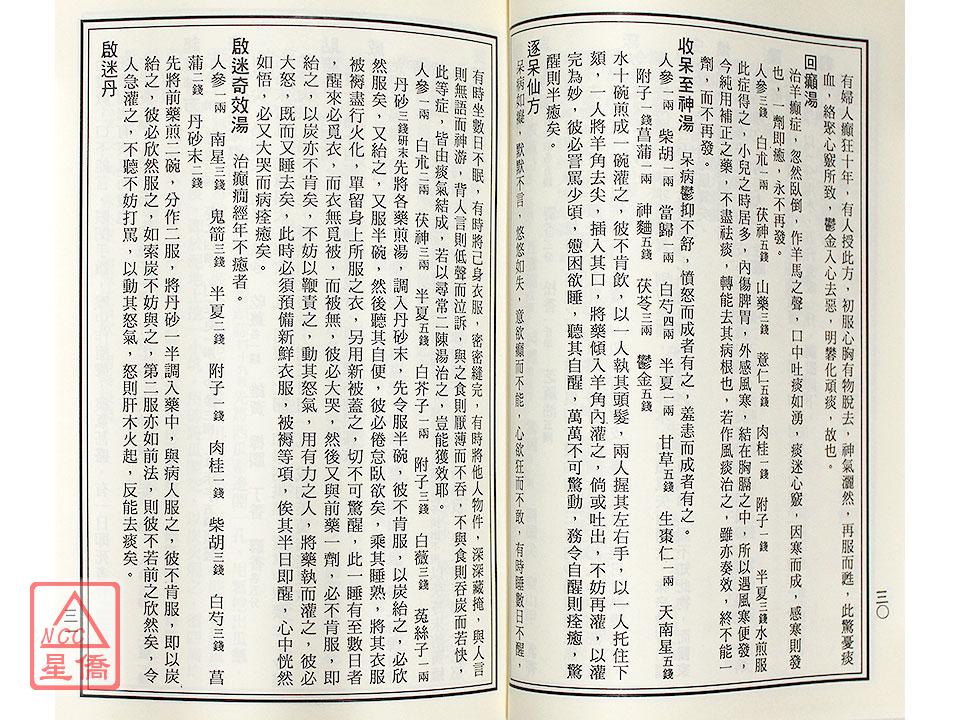 有婦人癲狂十年，有人授此方，初服心胸有物脫去，神氣灑然，再服而甦，此驚憂痰
血，絡聚心竅所致，鬱金入心去惡，明礬化頑痰，故也。
回癲湯
治羊癲症，忽然臥倒，作羊馬之聲，口中吐痰如湧，痰迷心竅，因寒而成，感寒則發
也，一劑即癒，永不再發。
人參三錢 白朮一兩 茯神五錢 山藥三錢 薏仁五錢 肉桂一錢 附子一錢 半夏三錢水煎服
此症得之，小兒之時居多，內傷脾胃，外感風寒，結在胸膈之中，所以遇風寒便發，
今純用補正之藥，不盡祛痰，轉能去其病根也，若作風痰治之，雖亦奏效，終不能一
劑，而不再發。
收呆至神湯 呆病鬱抑不舒，憤怒而成者有之，羞恚而成者有之。
人參一兩 柴胡一兩 當歸一兩 白芍四兩 半夏一兩 甘草五錢 生棗仁一兩 天南星五錢
附子一錢 菖蒲一兩 神麯五錢 茯苓三兩 鬱金五錢
水十碗煎成一碗灌之，彼不肯飲，以一人執其頭髮，兩人握其左右手，以一人托住下
頦，一人將羊角去尖，插入其口，將藥傾入羊角內灌之，倘或吐出，不妨再灌，以灌
完為妙，彼必詈罵少頃，憊困欲睡，聽其自醒，萬萬不可驚動，務令自醒則痊癒，驚
醒則半癒矣。
逐呆仙方
呆病如癡，默默不言，悠悠如失，意欲癲而不能，心欲狂而不敢，有時睡數日不醒，
三〇
有時坐數日不眠，有時將己身衣服，密密縫完，有時將他人物件，深深藏掩，與人言
則無語而神游，背人言則低聲而泣訴，與之食則厭薄而不吞，不與食則吞炭而若快，
此等症，皆由痰氣結成，若以尋常二陳湯治之，豈能獲效耶。
人參一兩 白朮二兩 茯神三兩 半夏五錢 白芥子一兩 附子三錢 白薇三錢 菟絲子一兩
丹砂三錢研末先將各藥煎湯，調入丹砂末，先令服半碗，彼不肯服，以炭紿之，必欣
然服矣，又紿之，又服半碗，然後聽其自便，彼必倦怠臥欲矣，乘其睡熟，將其衣服
被褥盡行火化，單留身上所服之衣，另用新被蓋之，切不可驚醒，此一睡有至數日者
，醒來必覓衣，而衣無覓被，而被無，彼必大哭，然後又與前藥一劑，必不肯服，即
紿之，以炭亦不肯矣，不妨以鞭責之，動其怒氣，用有力之人，將藥執而灌之，彼必
大怒，既而又睡去矣，此時必須預備新鮮衣服，被褥等項，俟其半日即醒，心中恍然
如悟，必又大哭而病痊癒矣。
啟迷奇效湯 治癲癇經年不癒者。
人參一兩 南星三錢 鬼箭三錢 半夏二錢 附子一錢 肉桂一錢 柴胡三錢 白芍三錢 菖
蒲二錢 丹砂末二錢
先將前藥煎二碗，分作二服，將丹砂一半調入藥中，與病人服之，彼不肯服，即以炭
紿之，彼必欣然服之，如索炭不妨與之，第二服亦如前法，則彼不若前之欣然矣，令
人急灌之，不聽不妨打罵，以動其怒氣，怒則肝木火起，反能去痰矣。
啟迷丹
三
NCC
星僑